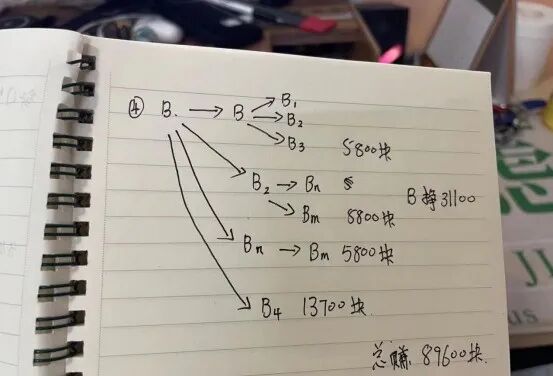 ④ B. → B → B₁
→ B₂
→ B₃ 5800块
B₂ → Bn
→ Bm 8800块
B 挣31100
Bn → Bm 5800块
B₄ 13700块.
总赚 89600块.